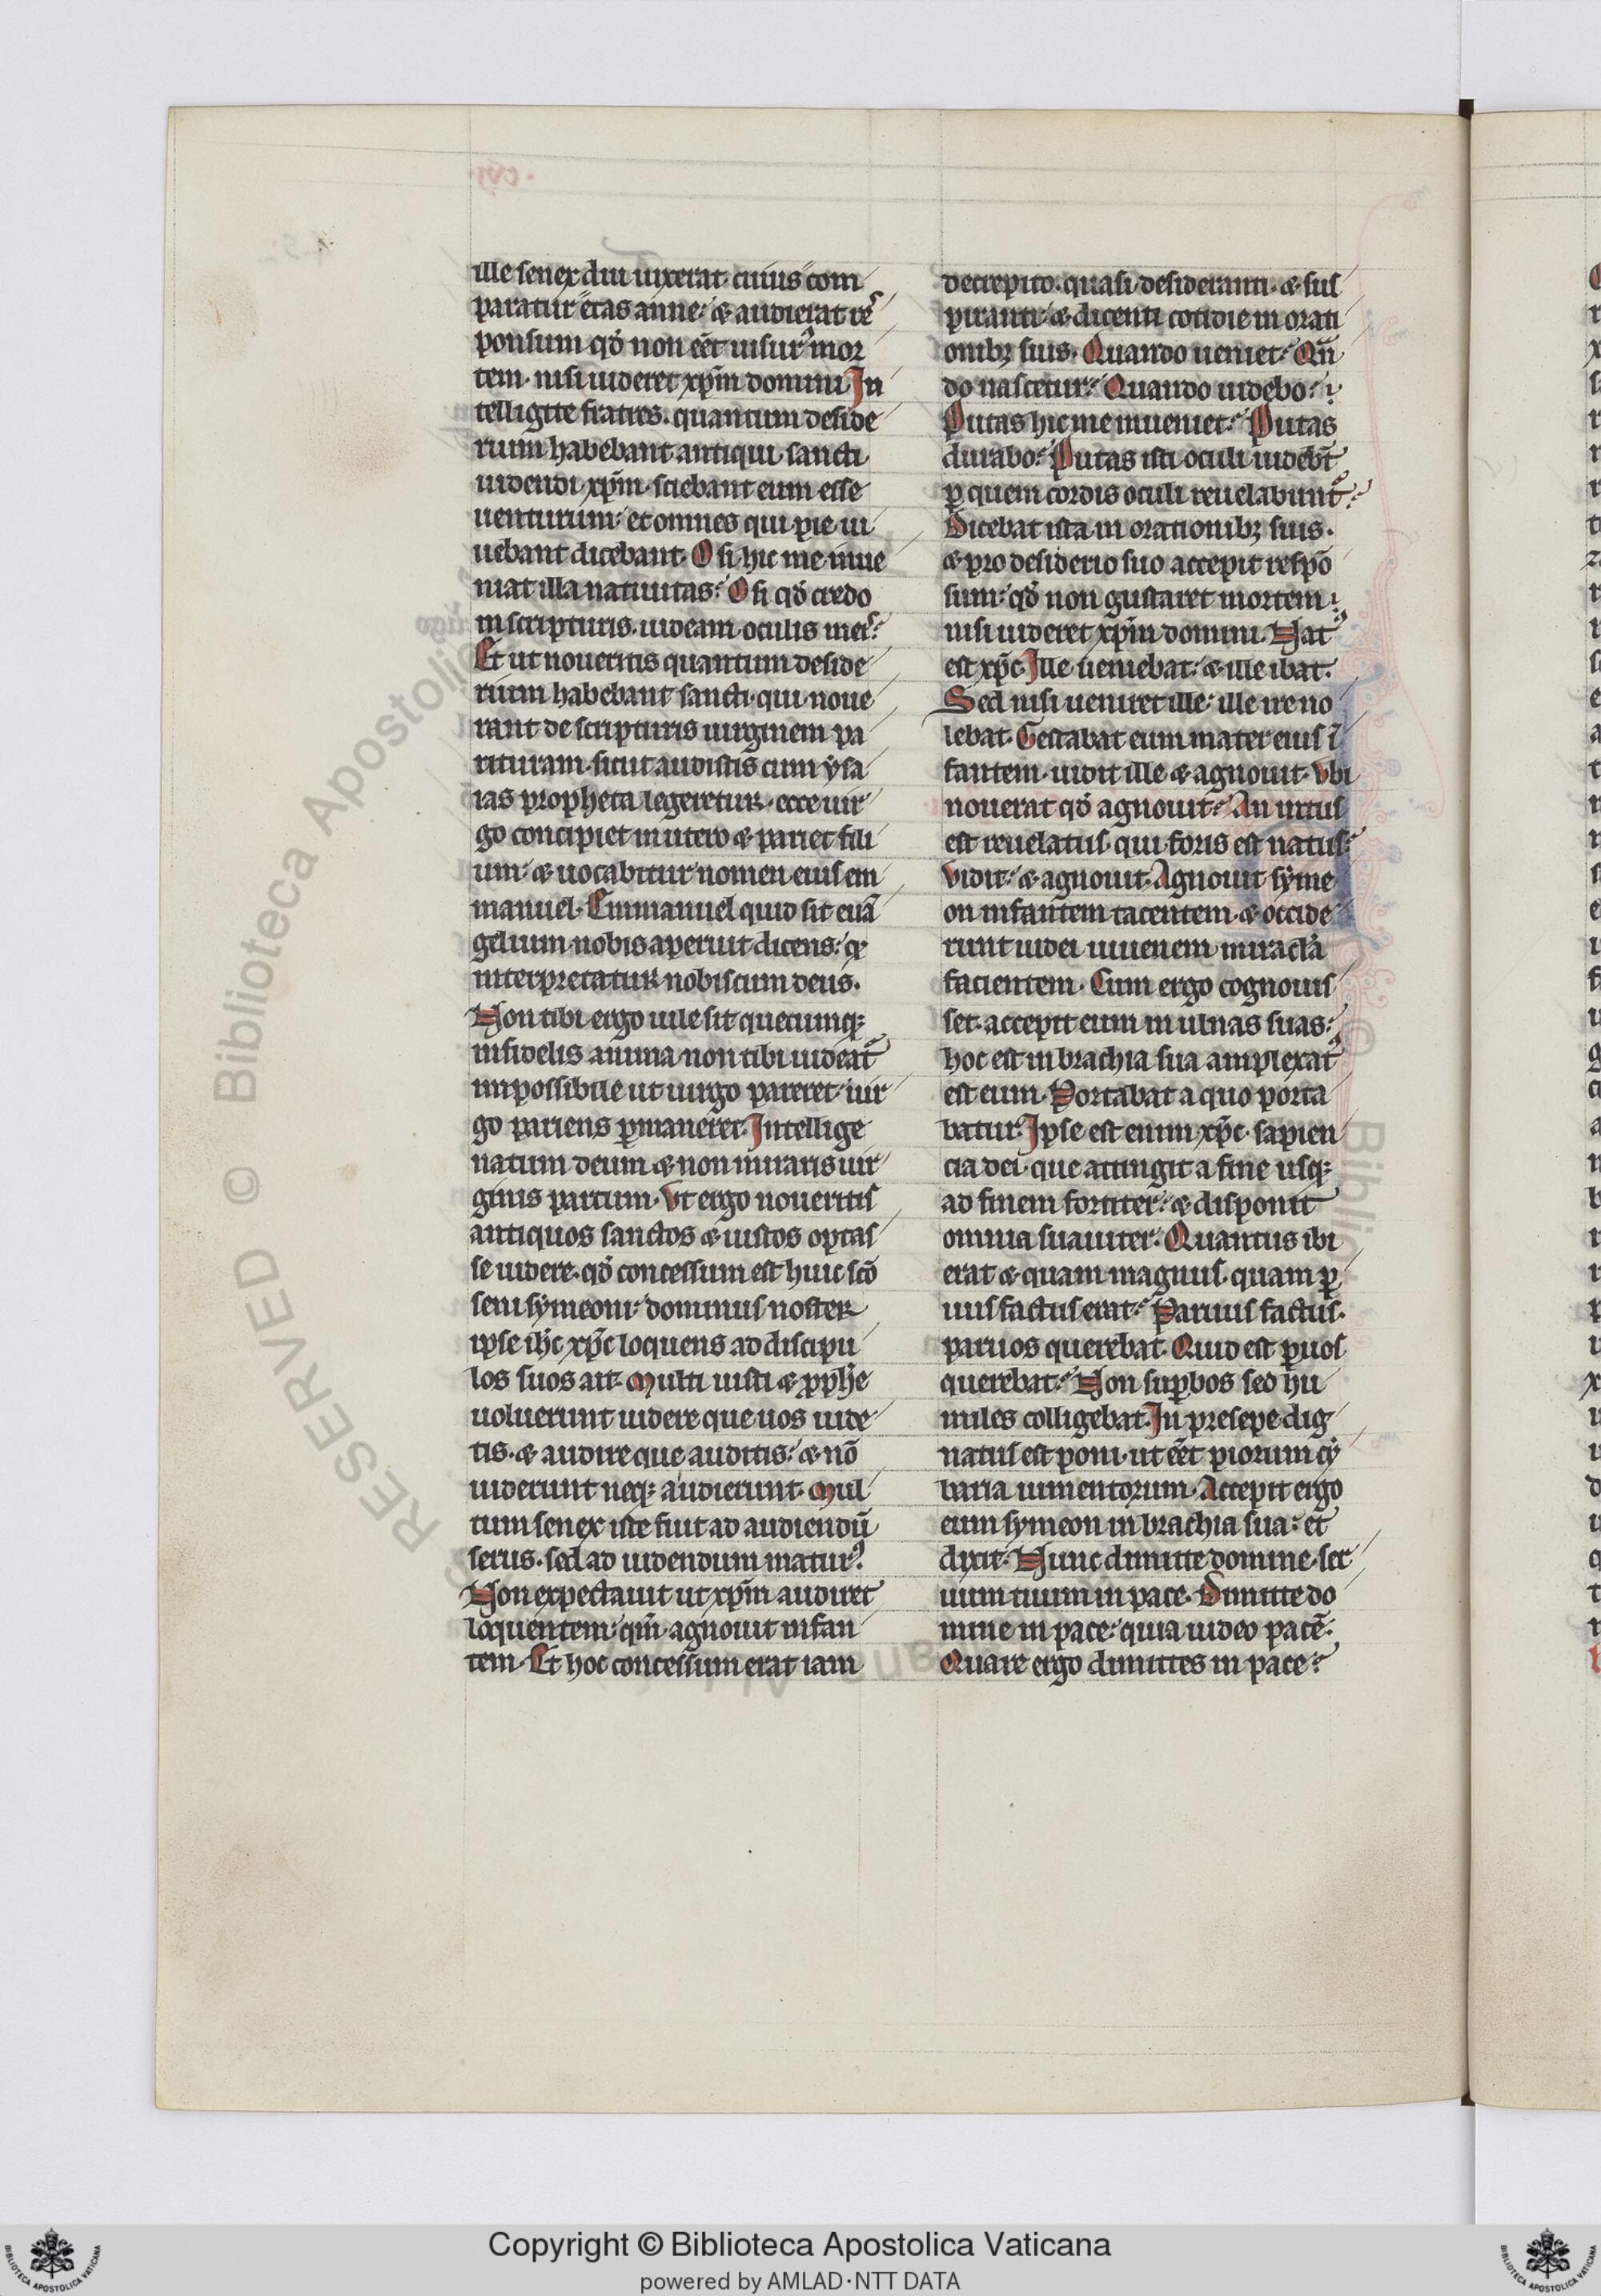 ille senex diu uixerat. cuius com
paratur etas anne: & audierat res
ponsum qd̓ non eēt uisurꝰ mor
tem. nisi uideret xp̄m domini. In
telligite fratres. quantum deside
rium habebant antiqui sancti
uidendi xp̄m. sciebant eum esse
uenturum: et omnes qui pie ui
uebant dicebant. O si hic me inue
niat illa natiuitas: O si qd̓ credo
in scripturis. uideam oculis meis.
Et ut noueritis quantum deside
rium habebant sancti. qui noue
rant de scripturis uirginem pa
rituram. sicut audistis cum ẏsa
ias propheta legeretur. ecce uir
go concipiet in utero & pariet fili
um: & uocabitur nomen eius em
manuel. Emmanuel quid sit euā
gelium nobis aperuit dicens: qđ
interpretatur nobiscum deus.
Non tibi ergo uile sit quecumqꝫ
infidelis anima non tibi uideat᷑
impossibile ut uirgo pareret. uir
go pariens ꝑmaneret. Intellige
natum deum & non miraris uir
ginis partum. Vt ergo noueritis
antiquos sanctos & iustos optas
se uidere. qd̓ concessum est huic sc̄o
seni sẏmeoni: dominus noster
ipse ih̄c xp̄c loquens ad discipu
los suos ait. Multi iusti & ꝓph̄e
uoluerunt uidere que uos uide
tis. & audire que auditis: & nō
uiderunt neqꝫ audierunt. Mul
tum senex iste fuit ad audiendū
serus. sed ad uidendum maturꝰ.
Non expectauit ut xp̄m audiret
loquentem: qm̄ agnouit infan
tem. Et hoc concessum erat iam
decrepito. quasi desideranti. & sus
piranti: & dicenti cotidie in orati
onibꝫ suis. Quando ueniet: Qn̄
do nascetur: Quando uidebo:
Putas hic me inueniet: Putas
durabo: Putas isti oculi uidebt̄
ꝑ quem cordis oculi reuelabunt᷑:
Dicebat ista in orationibꝫ suis.
& pro desiderio suo accepit respō
sum: qd̓ non gustaret mortem
nisi uideret xp̄m domini. Natꝰ
est xp̄c. Ille ueniebat: & ille ibat.
Sed nisi ueniret ille: ille ire no
lebat. Gestabat eum mater eius ī
fantem. uidit ille & agnouit. Vbi
nouerat qd̓ agnouit: An intus
est reuelatus. qui foris est natus:
Vidit: & agnouit. Agnouit sẏme
on infantem tacentem. & occide
runt iudei iuuenem miracl̓a
facientem. Cum ergo cognouis
set. accepit eum in ulnas suas:
hoc est in brachia sua amplexatꝰ
est eum. Portabat a quo porta
batur. Ipse est enim xp̄c. sapien
cia dei. que attingit a fine usqꝫ
ad finem fortiter: & disponit
omnia suauiter. Quantus ibi
erat & quam magnus. quam ꝑ
uus factus erat: Paruus factus.
paruos querebat. Quid est ꝑuos
querebat: Non suꝑbos sed hu
miles colligebat. In presepe dig
natus est poni. ut eēt piorum cẏ
baria iumentorum. Accepit ergo
eum sẏmeon in brachia sua: et
dixit. Nunc dimitte domine. ser
uum tuum in pace. Dimitte do
mine in pace: quia uideo pacē.
Quare ergo dimittes in pace:
RESERVED © Biblioteca Apostolica
Copyright © Biblioteca Apostolica Vaticana
powered by AMLAD·NTT DATA